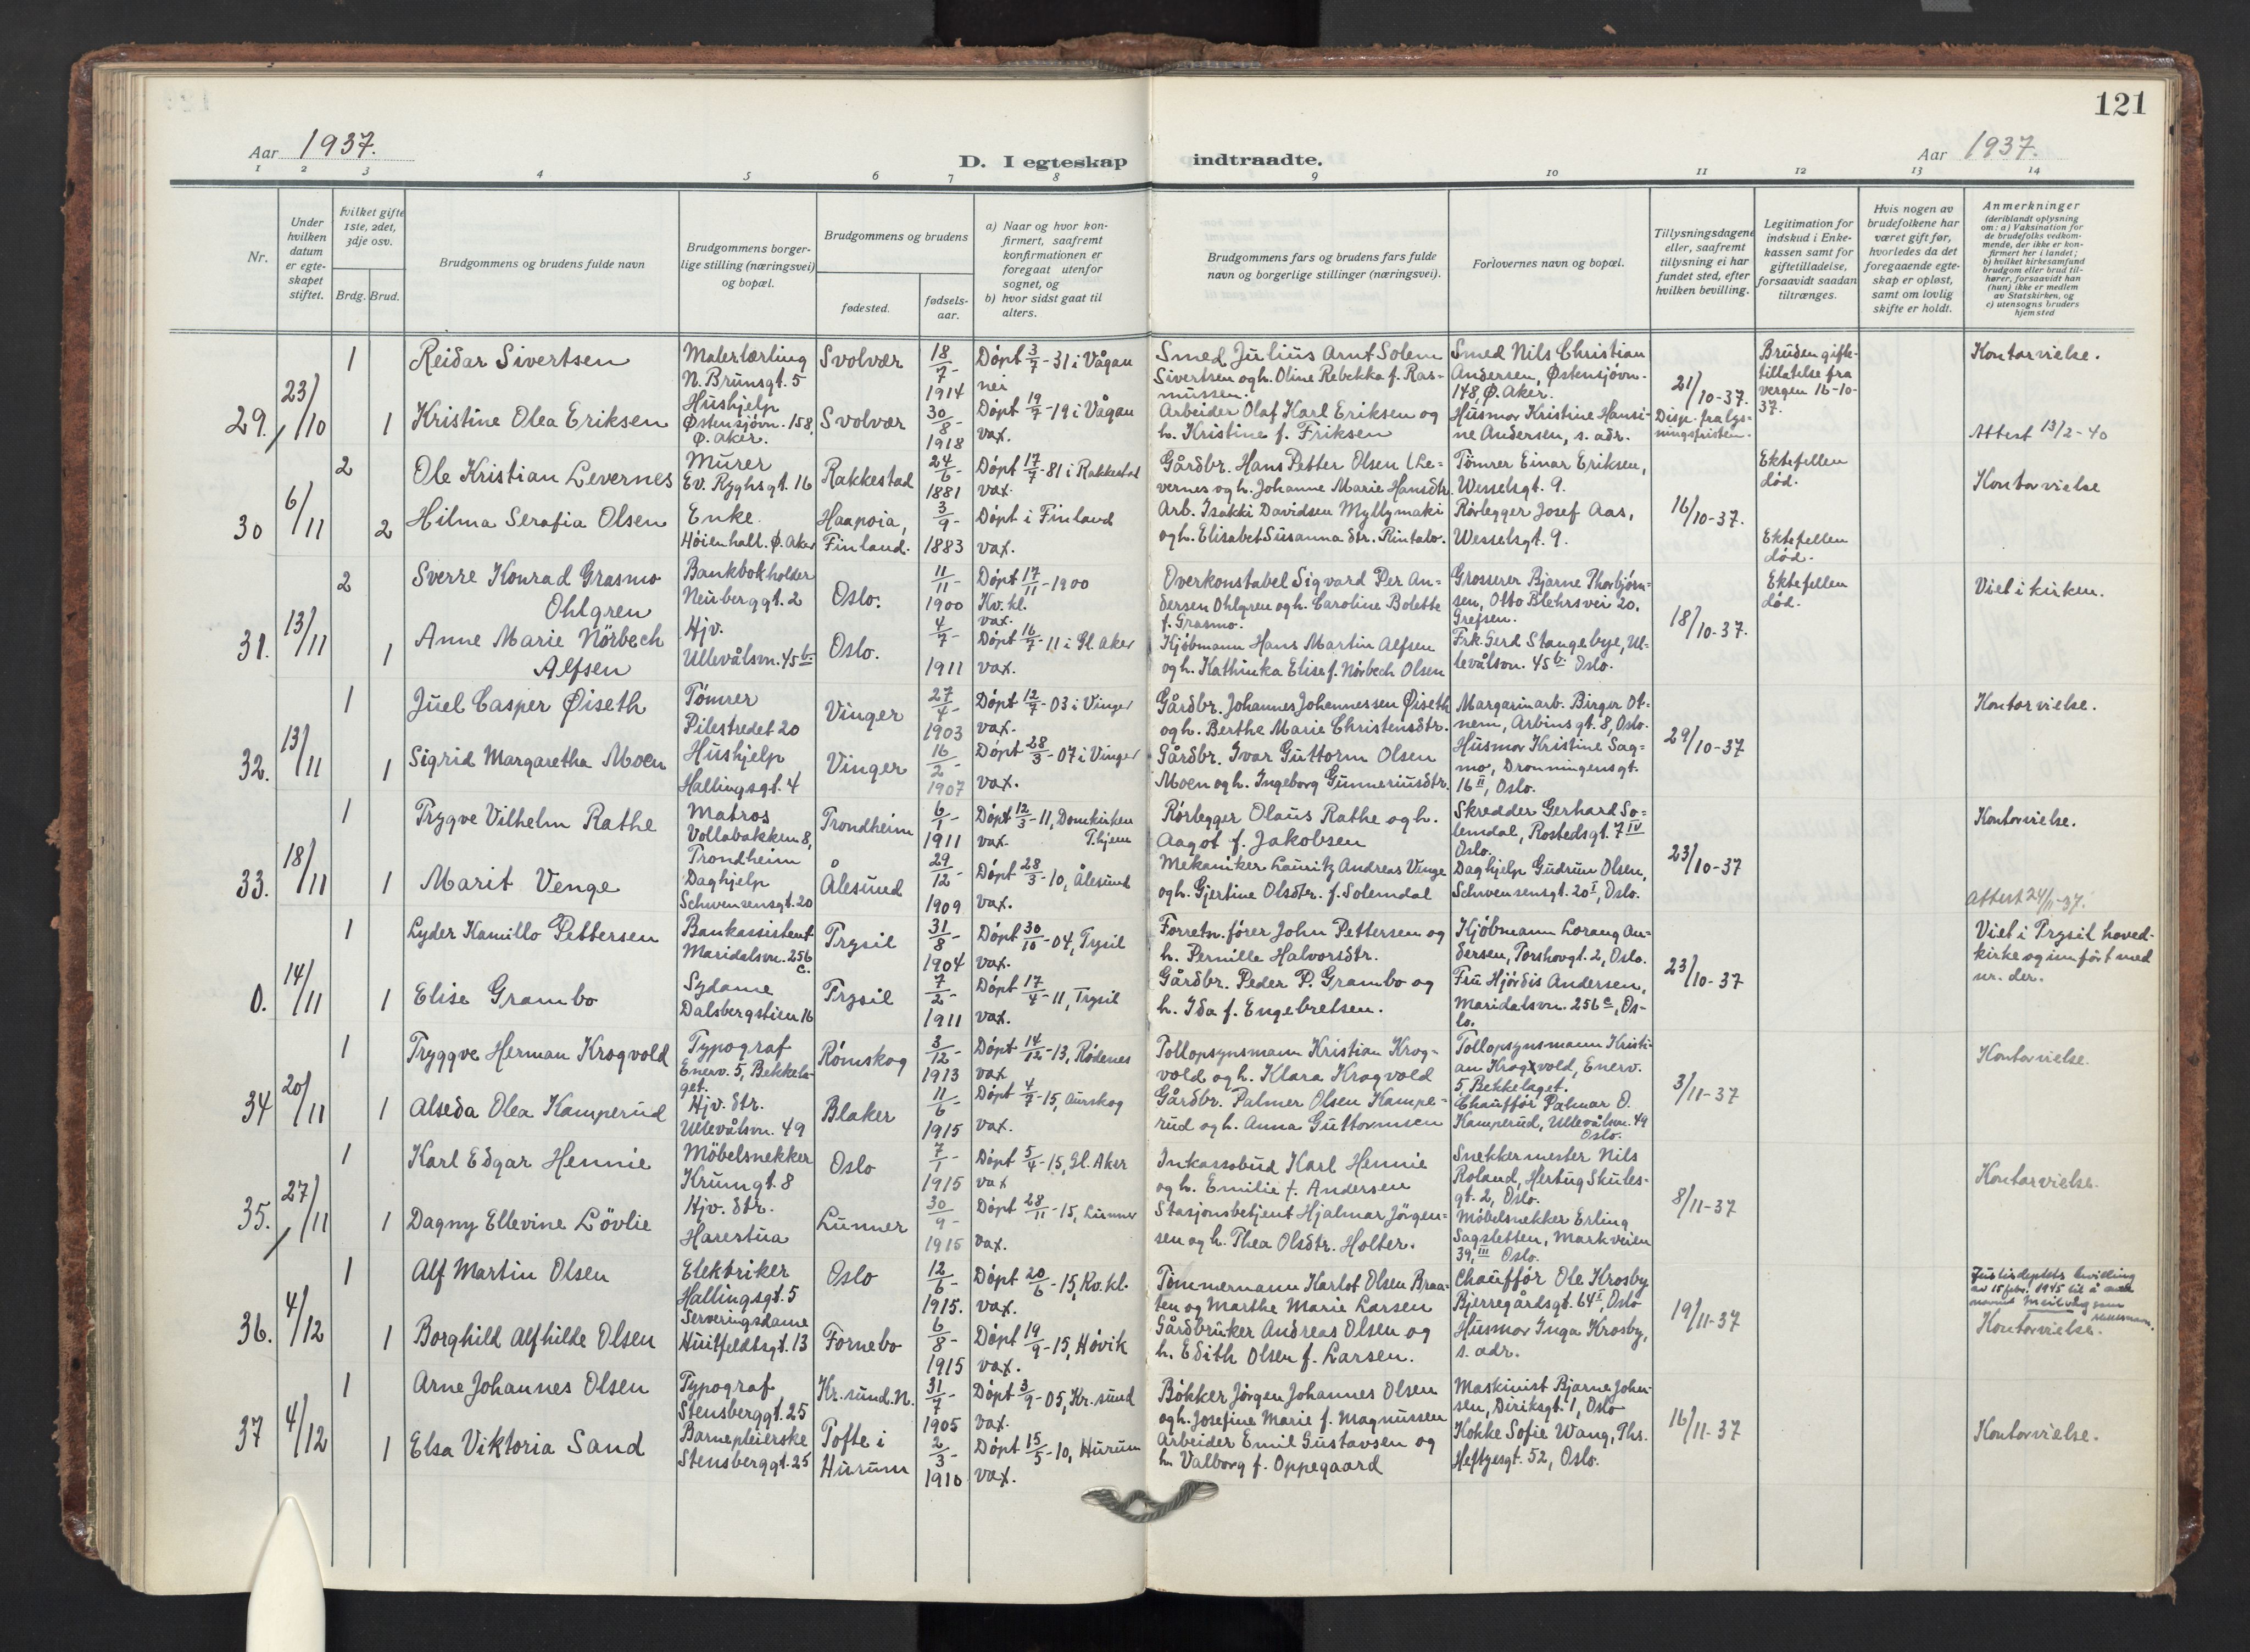 121
Aar 1937.
D. I egteskap indtraadte.
Aar 1937.
1 2 3 4 5 6 7 8 9 10 11 12 13 14
Nr.
Under
hvilken
datum
er egte-
skapet
stiftet.
hvilket gifte
1ste, 2det,
3dje osv.
Brdg. Brud.
Brudgommens og brudens fulde navn
Brudgommens borger-
lige stilling (næringsvei)
og bopæl.
Brudgommens og brudens
fødested.
fødsels-
aar.
a) Naar og hvor kon-
firmert, saafremt
konfirmationen er
foregaat utenfor
sognet, og
b) hvor sidst gaat til
alters.
Brudgommens fars og brudens fars fulde
navn og borgerlige stillinger (næringsvei).
Forlovernes navn og bopæl.
Tillysningsdagene
eller, saafremt
tillysning ei har
fundet sted, efter
hvilken bevilling.
Legitimation for
indskud i Enke-
kassen samt for
giftetilladelse,
forsaavidt saadan
tiltrænges.
Hvis nogen av
brudefolkene har
været gift før,
hvorledes da det
foregaaende egte-
skap er opløst,
samt om lovlig
skifte er holdt.
Anmerkninger
(deriblandt oplysning
om: a) Vaksination for
de brudefolks vedkom-
mende, der ikke er kon-
firmert her i landet;
b) hvilket kirkesamfund
brudgom eller brud til-
hører, forsaavidt han
(hun) ikke er medlem
av Statskirken, og
c) utensogns bruders
hjemsted
29. 23/10
1
Reidar Sivertsen
Malerlærling
N. Brunsgt. 5
Svolvær
18/7-
1914
Döpt 3/7-31 i Vågan
nei
Smed Julius Arnt Solem
Sivertsen og h. Oline Rebekka f. Ras-
mussen.
Smed Nils Christian
Andersen, Østensjövn.
148, Ø. Aker.
21/10-37.
Disp. fra lys-
ningsfristen.
Bruden gifte-
tillatelse fra
vergen 16-10-
37.
Kontorvielse.
1
Kristine Olea Eriksen
Hushjelp
Østensjövn. 158,
Ø. Aker.
Svolvær
30/8-
1918
Döpt 19/7-19 i Vågan
vax.
Arbeider Olaf Karl Eriksen og
h. Kristine f. Friksen
Husmor Kristine Hansi-
ne Andersen, s. adr.
Attest 13/2-40
30 6/11
2
Ole Kristian Levernes
Murer
Ev. Ryghsgt. 16
Rakkestad
24/6-
1881
Döpt 17/7-81 i Rakkestad
vax.
Gårdbr. Hans Petter Olsen (Le-
vernes og h. Johanne Marie Hansdtr.
Tömrer Einar Eriksen,
Wesselsgt. 9.
16/10-37.
Ektefellen
död.
Kontorvielse
2
Hilma Serafia Olsen
Enke.
Höienhall. Ø. Aker
Haapoia,
Finland.
3/9-
1883
Döpt i Finland
vax.
Arb. Isakki Davidsen Myllymaki
og h. Elisabet Susanna dtr. Rintalo.
Rörlegger Josef Aas,
Wesselsgt. 9.
Ektefellen
död.
31. 13/11
2
Sverre Konrad Grasmo
Ohlgren
Bankbokholder
Neuberggt. 2
Oslo.
11/11-
1900
Döpt 17/11-1900
Kv. kl.
vax.
Overkonstabel Sigvard Per An-
dersen Ohlgren og h. Caroline Bolette
f. Grasmo.
Grosserer Bjarne Thorbjörn-
sen, Otto Blehrsvei 20,
Grefsen.
18/10-37.
Ektefellen
död.
Viet i kirken.
1
Anne Marie Nörbech
Alfsen
Hjv.
Ullevålsvn. 45 b.
Oslo.
4/7-
1911
Döpt 16/7-11 i Gl. Aker
vax.
Kjöbmann Hans Martin Alfsen
og h. Kathinka Elise f. Nörbech Olsen
Frk. Gerd Stangebye, Ul-
levålsvn. 45 b. Oslo.
32. 13/11
1
Juel Casper Øiseth
Tömrer
Pilestredet 20
Vinger
27/4-
1903
Döpt 12/7-03 i Vinger
vax.
Gårdbr. Johannes Johannessen Øiseth
og h. Berthe Marie Christensdtr.
Margarinarb. Birger Ot-
nem, Arbinsgt. 8, Oslo.
29/10-37
Kontorvielse.
1
Sigrid Margaretha Moen
Hushjelp
Hallingsgt. 4
Vinger
16/2-
1907
Döpt 28/3-07 i Vinger
vax.
Gårdbr. Ivar Guttorm Olsen
Moen og h. Ingeborg Gunneriusdtr.
Husmor Kristine Sag-
mo, Dronningensgt.
16 II, Oslo.
33. 18/11
1
Trygve Vilhelm Rathe
Matros
Vollabakken 8,
Trondheim
Trondheim
6/1-
1911
Döpt 12/3-11, Domkirken
vax. T.hjem
Rörlegger Olaus Rathe og h.
Aagot f. Jakobsen
Skredder Gerhard So-
lemdal, Rostedsgt. 7 IV
Oslo.
23/10-37
Kontorvielse.
1
Marit Venge
Daghjelp
Schwensensgt. 20
Ålesund
29/12-
1909
Döpt 28/3-10, Ålesund
vax.
Mekaniker Lauritz Andreas Venge
og h. Gjertine Olsdtr. f. Solemdal
Daghjelp Gudrun Olsen,
Schwensensgt. 20 I, Oslo.
Attest 24/11-37.
0. 14/11
1
Lyder Kamillo Pettersen
Bankassistent
Maridalsvn. 256
c.
Trysil
31/8-
1904
Döpt 30/10-04, Trysil
vax.
Forretn.förer John Pettersen og
h. Pernille Halvorsdtr.
Kjöbmann Lorang An-
dersen, Torshovgt. 2, Oslo.
23/10-37
Viet i Trysil hoved-
kirke og innfört med
nr. der.
1
Elise Grambo
Sydame
Dalsbergstien 16
Trysil
7/2-
1911
Döpt 17/4-11, Trysil
vax.
Gårdbr. Peder P. Grambo og
h. Ida f. Engebretsen.
Fru Hjördis Andersen,
Maridalsvn. 256 c, Os-
lo.
34 20/11
1
Tryggve Herman Krogvold
Typograf
Enerv. 5, Bekkela-
get.
Römskog
3/12-
1913
Döpt 14/12-13, Rödenes
vax
Tollopsynsmann Kristian Krog-
vold og h. Klara Krogvold
Tollopsynsmann Kristi-
an Krogvold, Enerv.
5, Bekkelaget.
3/11-37
Kontorvielse.
1
Alseda Olea Kamperud
Hjv. dtr.
Ullevålsvn. 49
Blaker
11/6-
1915
Döpt 4/7-15, Aurskog
vax.
Gårdbr. Palmer Olsen Kampe-
rud og h. Anna Guttormsen
Chaufför Palmar O.
Kamperud, Ullevålsvn. 49
Oslo.
35. 27/11
1
Karl Edgar Hennie
Möbelsnekker
Krumgt. 8
Oslo
7/1-
1915
Döpt 5/4-15, Gl. Aker
vax
Inkassobud Karl Hennie
og h. Emilie f. Andersen
Snekkermester Nils
Roland, Hertug Skules-
gt. 2, Oslo.
8/11-37
Kontorvielse.
1
Dagny Ellevine Lövlie
Hjv. dtr.
Harestua
Lunner
30/9-
1915
Döpt 28/11-15, Lunner
vax.
Stasjonsbetjent Hjalmar Jörgen-
sen og h. Thea Olsdtr. Holter.
Möbelsnekker Erling
Sagsletten, Markveien
39, III Oslo.
36. 4/12
1
Alf Martin Olsen
Elektriker
Hallingsgt. 5
Oslo
12/6-
1915.
Döpt 20/6-15, Kv. kl.
vax.
Tömmermann Karlot Olsen Braa-
ten og Marthe Marie Larsen
Chaufför Ole Krosby
Bjerregårdsgt. 64 I, Oslo
19/11-37
Justisdeptets bevilling
av 15 febr. 1945 til å
Kontorvielse.
1
Borghild Alfhilde Olsen
Serveringsdame
Huitfeldtsgt. 13
Fornebo
6/8-
1915
Döpt 19/9-15, Hövik
vax.
Gårdbruker Andreas Olsen og
h. Edith Olsen f. Larsen.
Husmor Inga Krosby,
s. adr.
37 4/12
1
Arne Johannes Olsen
Typograf
Stensberggt. 25
Kr.sund. N.
31/7-
1905
Döpt 3/9-05, Kr.sund
vax.
Bökker Jörgen Johannes Olsen
og h. Josefine Marie f. Magnussen
Maskinist Bjarne Johan-
sen, Diriksgt. 1, Oslo
16/11-37
Kontorvielse.
1
Elsa Viktoria Sand
Barnepleierske
Stensberggt. 25
Tofte i
Hurum
2/3-
1910
Döpt 15/5-10, Hurum
vax.
Arbeider Emil Gustavsen og
h. Valborg f. Oppegaard
Kokke Sofie Wang, Ths.
Heftyesgt. 52, Oslo.